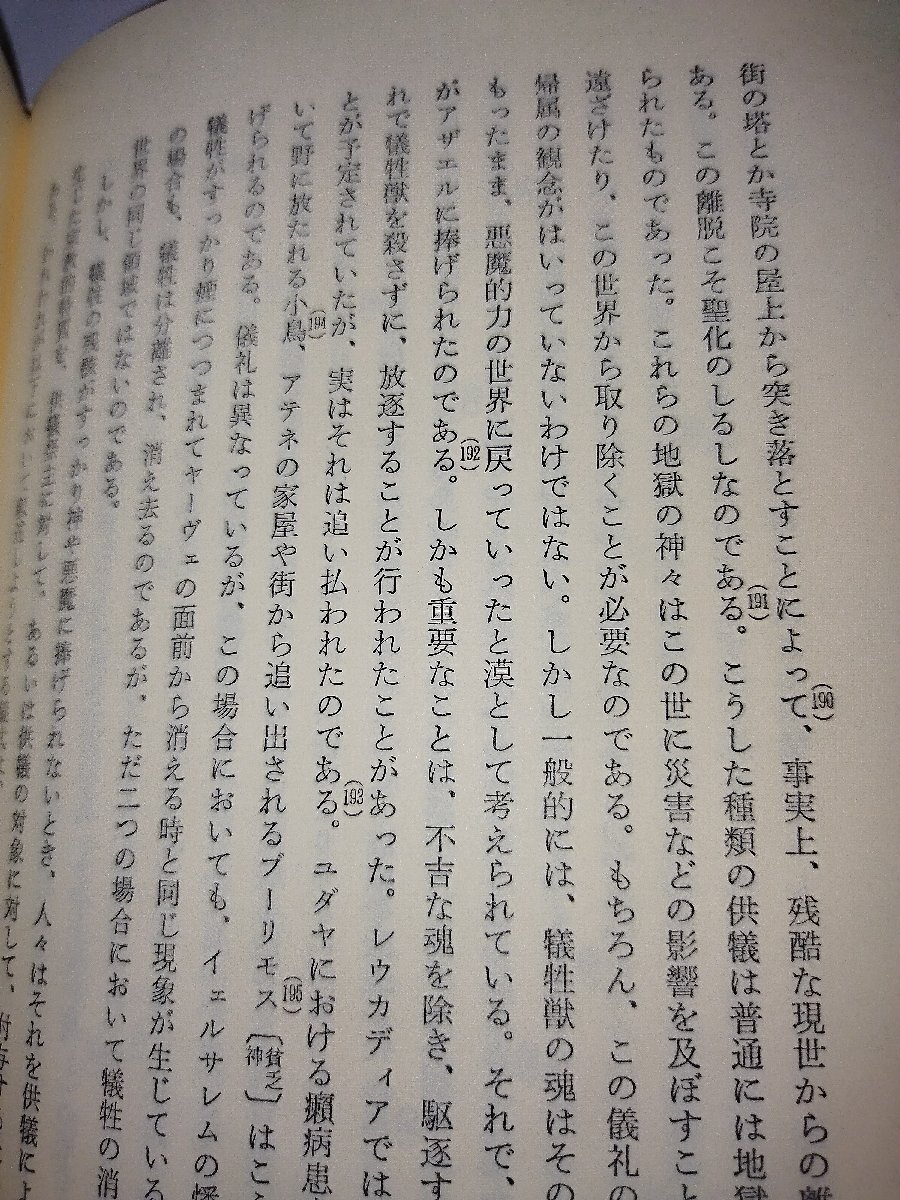 街の塔とか寺院の屋上から突き落とすことによって、(190)事実上、残酷な現世からの離
ある。この離脱こそ聖化のしるしなのである。(191)こうした種類の供犠は普通には地獄
られたものであった。これらの地獄の神々はこの世に災害などの影響を及ぼすこと
遠さけたり、この世界から取り除くことが必要なのである。もちろん、この儀礼の
帰属の観念がはいっていないわけではない。しかし一般的には、犠牲獣の魂はその
もったまま、悪魔的力の世界に戻っていったと漠として考えられている。それで、
がアザエルに捧げられたのである。(192)しかも重要なことは、不吉な魂を除き、駆逐す
れで犠牲獣を殺さずに、放逐することが行われたことがあった。レウカディアでは
とが予定されていたが、実はそれは追い払われたのである。(193)ユダヤにおける癩病患
いて野に放たれる小鳥、(194)アテネの家屋や街から追い出されるブーリモス(195)〔貧乏神〕はこ
げられるのである。儀礼は異なっているが、この場合においても、イェルサレムの燔
犠牲がすっかり煙につつまれてヤーヴェの面前から消える時と同じ現象が生じている
の場合も、犠牲は分離され、消え去るのであるが、ただ二つの場合において犠牲の消
世界の同じ領域ではないのである。
しかし、犠牲の残骸がすっかり神や悪魔に捧げられないとき、人々はそれを供犠によ
供犠祭主に対して、あるいは供犠の対象に対して、